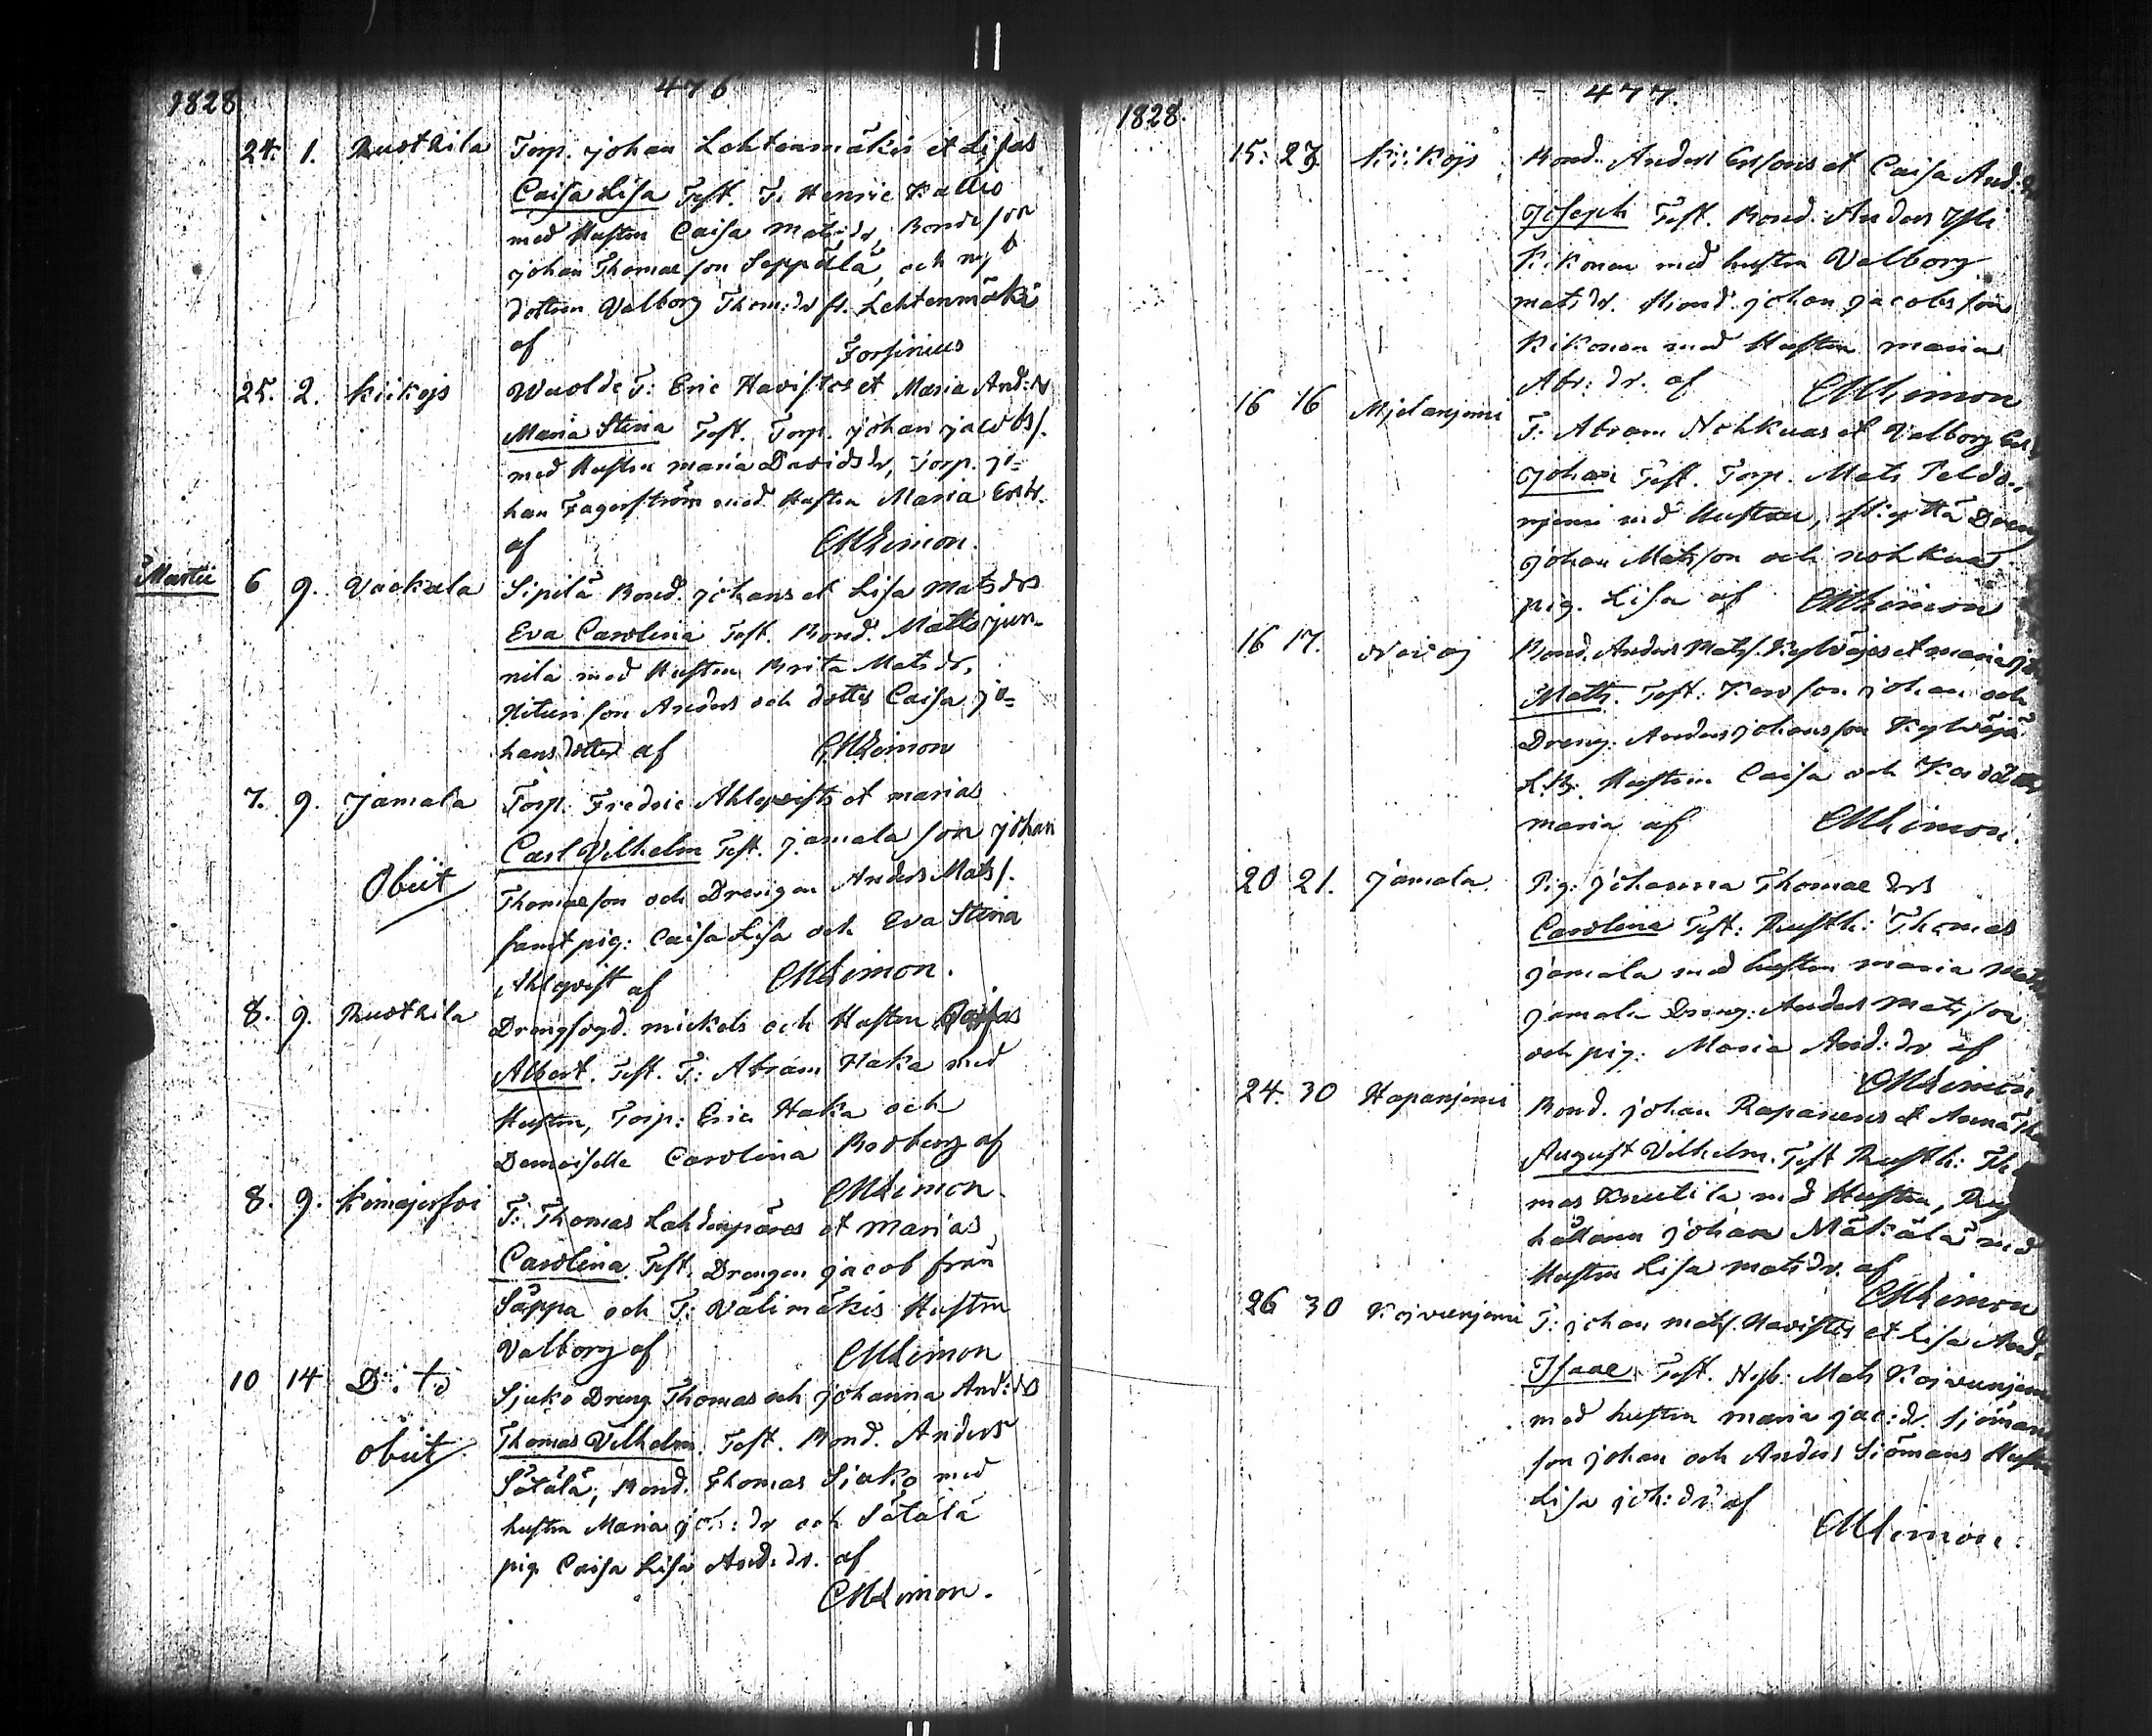 476
1828
24. 1. Rustkila Torp. johan Lehtenmäkis et Lisas
Caisa Lisa Test. T. Henric Kallio
med Hustru Caisa Mats dr, Bondeson
johan Thomasson Seppälä, och nyb
dottren Valborg Thom:dr fr. Lehtenmäki
af Forsinius
25. 2. Kiikojs Wuolde T: Eric Havistos et Maria And:dr
Maria Stina Test. Torp. johan jacobs/.
med Hustru maria Davids dr, Torp. jo=
han Fagerström med Hustru Maria Er:dr.
af CMLimon.
Martii 6 9. Vackala Sipilä Bond. johans et Lisa Mats drs
Eva Carolina Test. Bond. Matts jun-
nila med Hustru Brita Mats dr,
son Anders och dotter Caisa jo=
hansdotter af CMLimon
7. 9. Jamala Torp. Fredric Ahlqvists et marias
Carl Vilhelm Test. jamala son johan
Obiit Thomasson och Drengen Anders Mats/.
samt pig: Caisa Lisa och Eva Stina
Ahlqvist af CMLimon.
8. 9. Rustkila Drengfogd. mickels och Hustru Caisas
Albert. Test. T: Abram Haka med
Hustru, Torp: Eric Haka och
Demoiselle Carolina Boberg af
CMLimon.
8. 9. Kimajersoi T: Thomas Lahdenpäras et marias
Carolina. Test. Drengen jacob från
Säppa och T: Välimäkis Hustru
Valborg af CMLimon
10 14 D:to Sjuko Dreng Thomas och johanna And:drs
obiit Thomas Vilhelm. Test. Bond. Anders
Sätälä, Bond. Thomas Sjuko med
hustru Maria joh:dr och Sätälä
pig. Caisa Lisa And:dr. af
CMLimon.
477.
1828.
15. 23. Kiikojs Bond. Anders Ersons et Caisa And:dr
Joseph Test. Bond. Anders Yli
Kikonen med hustru Valborg
mats dr. Bond. johan jacobsson
Kikonen med Hustru maria
Abr: dr. af CMLimon
16 16 Mjelanjemi T: Abram Nohkuas et Valborg
johan Test. Torp. Mats Peldo-
njemi med Hustru, Dreng
johan Matsson och nohkuas
pig. Lisa af CMLimon
16 17. Bond. Anders Mats/. Kylväjes et maria
Matts. Test. son johan och
Dreng. Anders johansson Kylväjä
Hustrun Caisa och
maria af CMLimon.
20 21. Jamala Pig. Johanna Thomae drs
Carolina Test: Rusth: Thomas
jamala med hustru maria Mats
jamala Dreng: Anders Matsson
och pig. Maria And:dr af
CMLimon
24. 30 Hapanjemi Bond. johan Rapanens et Anna
August Vilhelm. Test Rusth: Tho
mas Knutila med Hustru, Rust
hållaren johan Mäkälä med
Hustru Lisa mats dr. af
CMLimon
26 30 Kojvunjemi T: johan mats/. Havistos et Lisa And:
Isaac. Test. Nyb. Mats Kojvunjemi
med hustru maria jac:dr. Sjömans
son johan och Anders Siömans Hustru
Lisa joh:dr af
CMLimon.